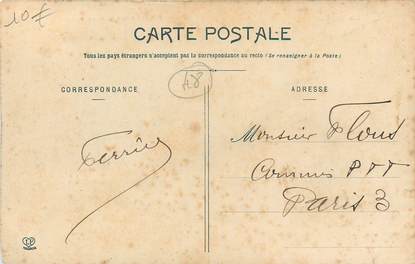 10€
CARTE POSTALE
Tous les pays étrangers n'acceptent pas la correspondance au recto (Se renseigner à la Poste)
CORRESPONDANCE
48
ADRESSE
Monsieur Flous
Commis PTT
Paris 3